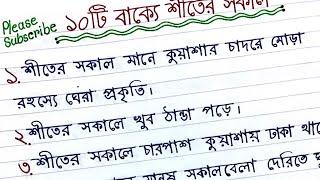 Please
Subscribe
১০টি বাক্যে শীতের সকাল
১. শীতের সকাল মানে কুয়াশার চাদরে মোড়া
রহস্যে ঘেরা প্রকৃতি।
২. শীতের সকালে খুব ঠান্ডা পড়ে।
৩. শীতের সকালে চারপাশ কুয়াশায় ঢাকা থাকে
সকালবেলা দেরিতে